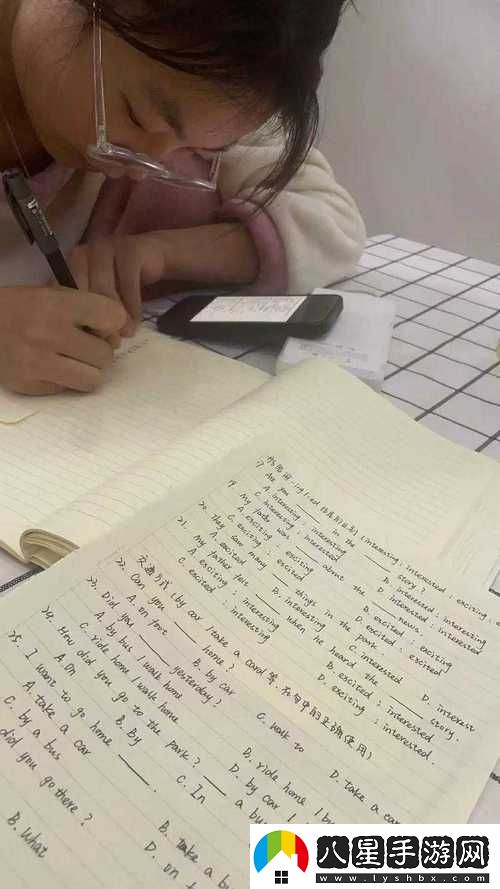 形容词 -ing / -ed 结尾的区别 (interesting ; interested ; exciting ;
17. Are you ___ in the ___ story?
A. interesting ; interesting B. interested ; interesting
C. interesting ; interested D. interested ; interested
My father was ___ about the ___ news.
A. exciting ; exciting B. excited ; exciting
C. exciting ; excited D. excited ; excited
20. They saw many ___ things in the park.
A. excited B. interesting C. interested D. interest
21. My father felt ___ when he heard the ___ story.
A. exciting ; interesting B. excited ; interested
C. excited ; interesting D. exciting ; interested.
22. 交通方式 (by car / take a car
Can you ___ home?
A. on foot B. by car C. walk to D. take a car
23. Did you ___ yesterday?
A. by bus / walk home
C. ride home / walk home D. ride home / by
24. How did you go to the park? ___ a bus
A. On B. By C. In D. by car /
25. I want to go home ___.
A. take a car B. take a bu
C. by a bus D. on
did you go there?
B. What
八星手游网
www.lyshbx.com